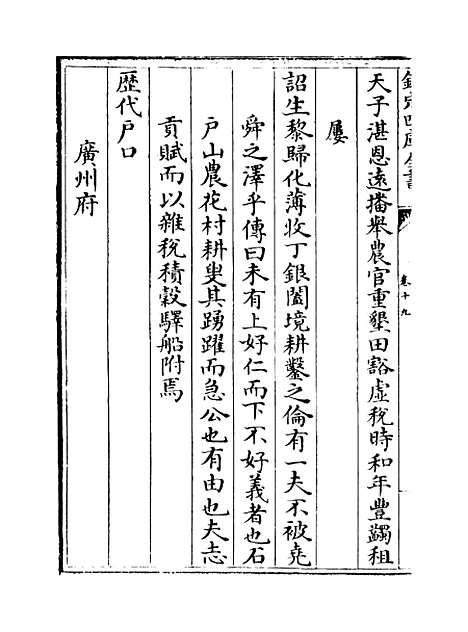 欽定四庫全書
卷十九
天子湛恩遠播舉農官重墾田豁虛稅時和年豐蠲租
屢
詔生黎歸化薄收丁銀闔境耕鑿之倫有一夫不被堯
舜之澤乎傳曰未有上好仁而下不好義者也石
户山農花村耕叟其踴躍而急公也有由也夫志
貢賦而以雜稅積穀驛船附焉
歷代户口
廣州府